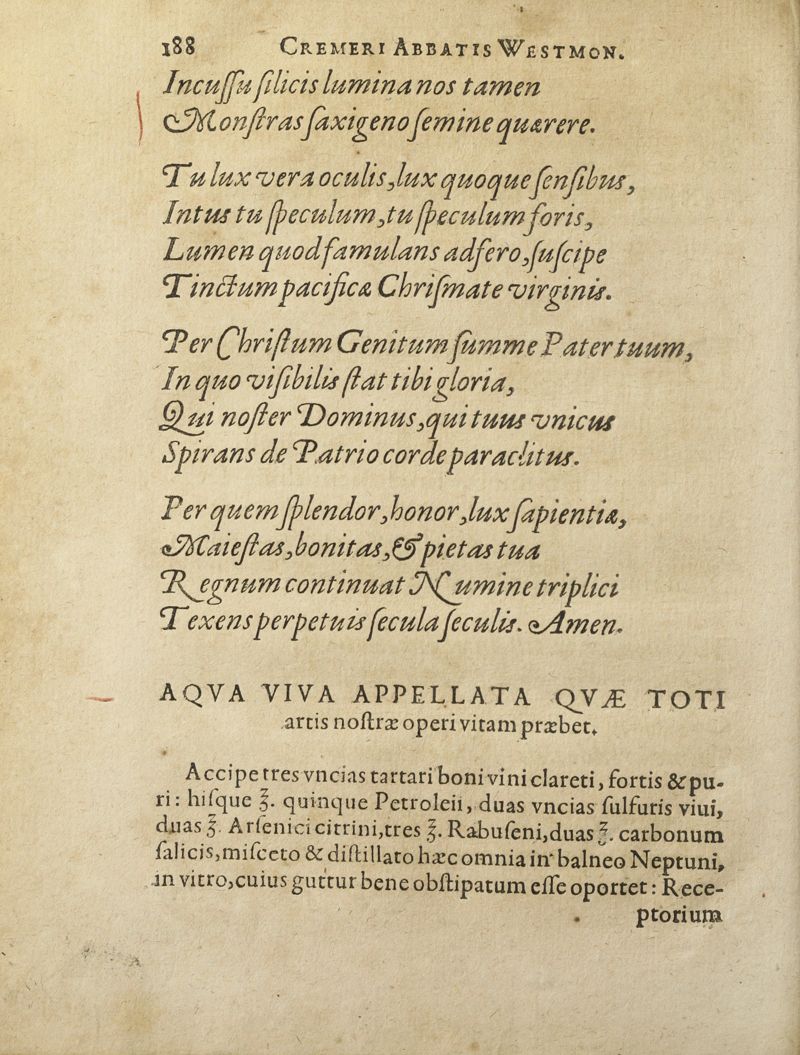 188 CREMERI ABBATIS WESTMON.
Incuſſu ſilicis lumina nos tamen
Monſtras ſaxigeno ſemine quærere.
Tu lux vera oculis, lux quoque ſenſibus,
Intus tu ſpeculum, tu ſpeculum foris,
Lumen quod famulans adfero, ſuſcipe
Tinctum pacificæ Chriſmate virginis.
Per Chriſtum Genitum ſumme Pater tuum,
In quo viſibilis ſtat tibi gloria,
Qui noſter Dominus, qui tuus vnicus
Spirans de Patrio corde paraclitus.
Per quem ſplendor, honor, lux ſapientiæ,
Maieſtas, bonitas, & pietas tua
Regnum continuat Numine triplici
Texens perpetuis ſecula ſeculis. Amen.
AQVA VIVA APPELLATA QVÆ TOTI
artis noſtræ operi vitam præbet.
Accipe tres vncias tartari boni vini clareti, fortis & pu-
ri: hiſque ℥. quinque Petroleii, duas vncias ſulfuris viui,
duas ℥. Arſenici citrini, tres ℥. Rabuſeni, duas ℥. carbonum
ſalicis, miſceto & diſtillato hæc omnia in balneo Neptuni,
in vitro, cuius guttur bene obſtipatum eſſe oportet: Rece-
ptorium